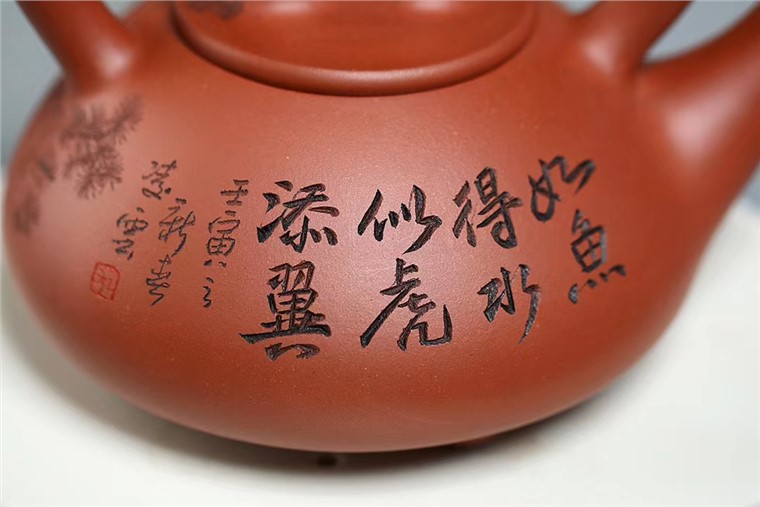 如魚
得水
似虎
添翼
壬寅之
新春